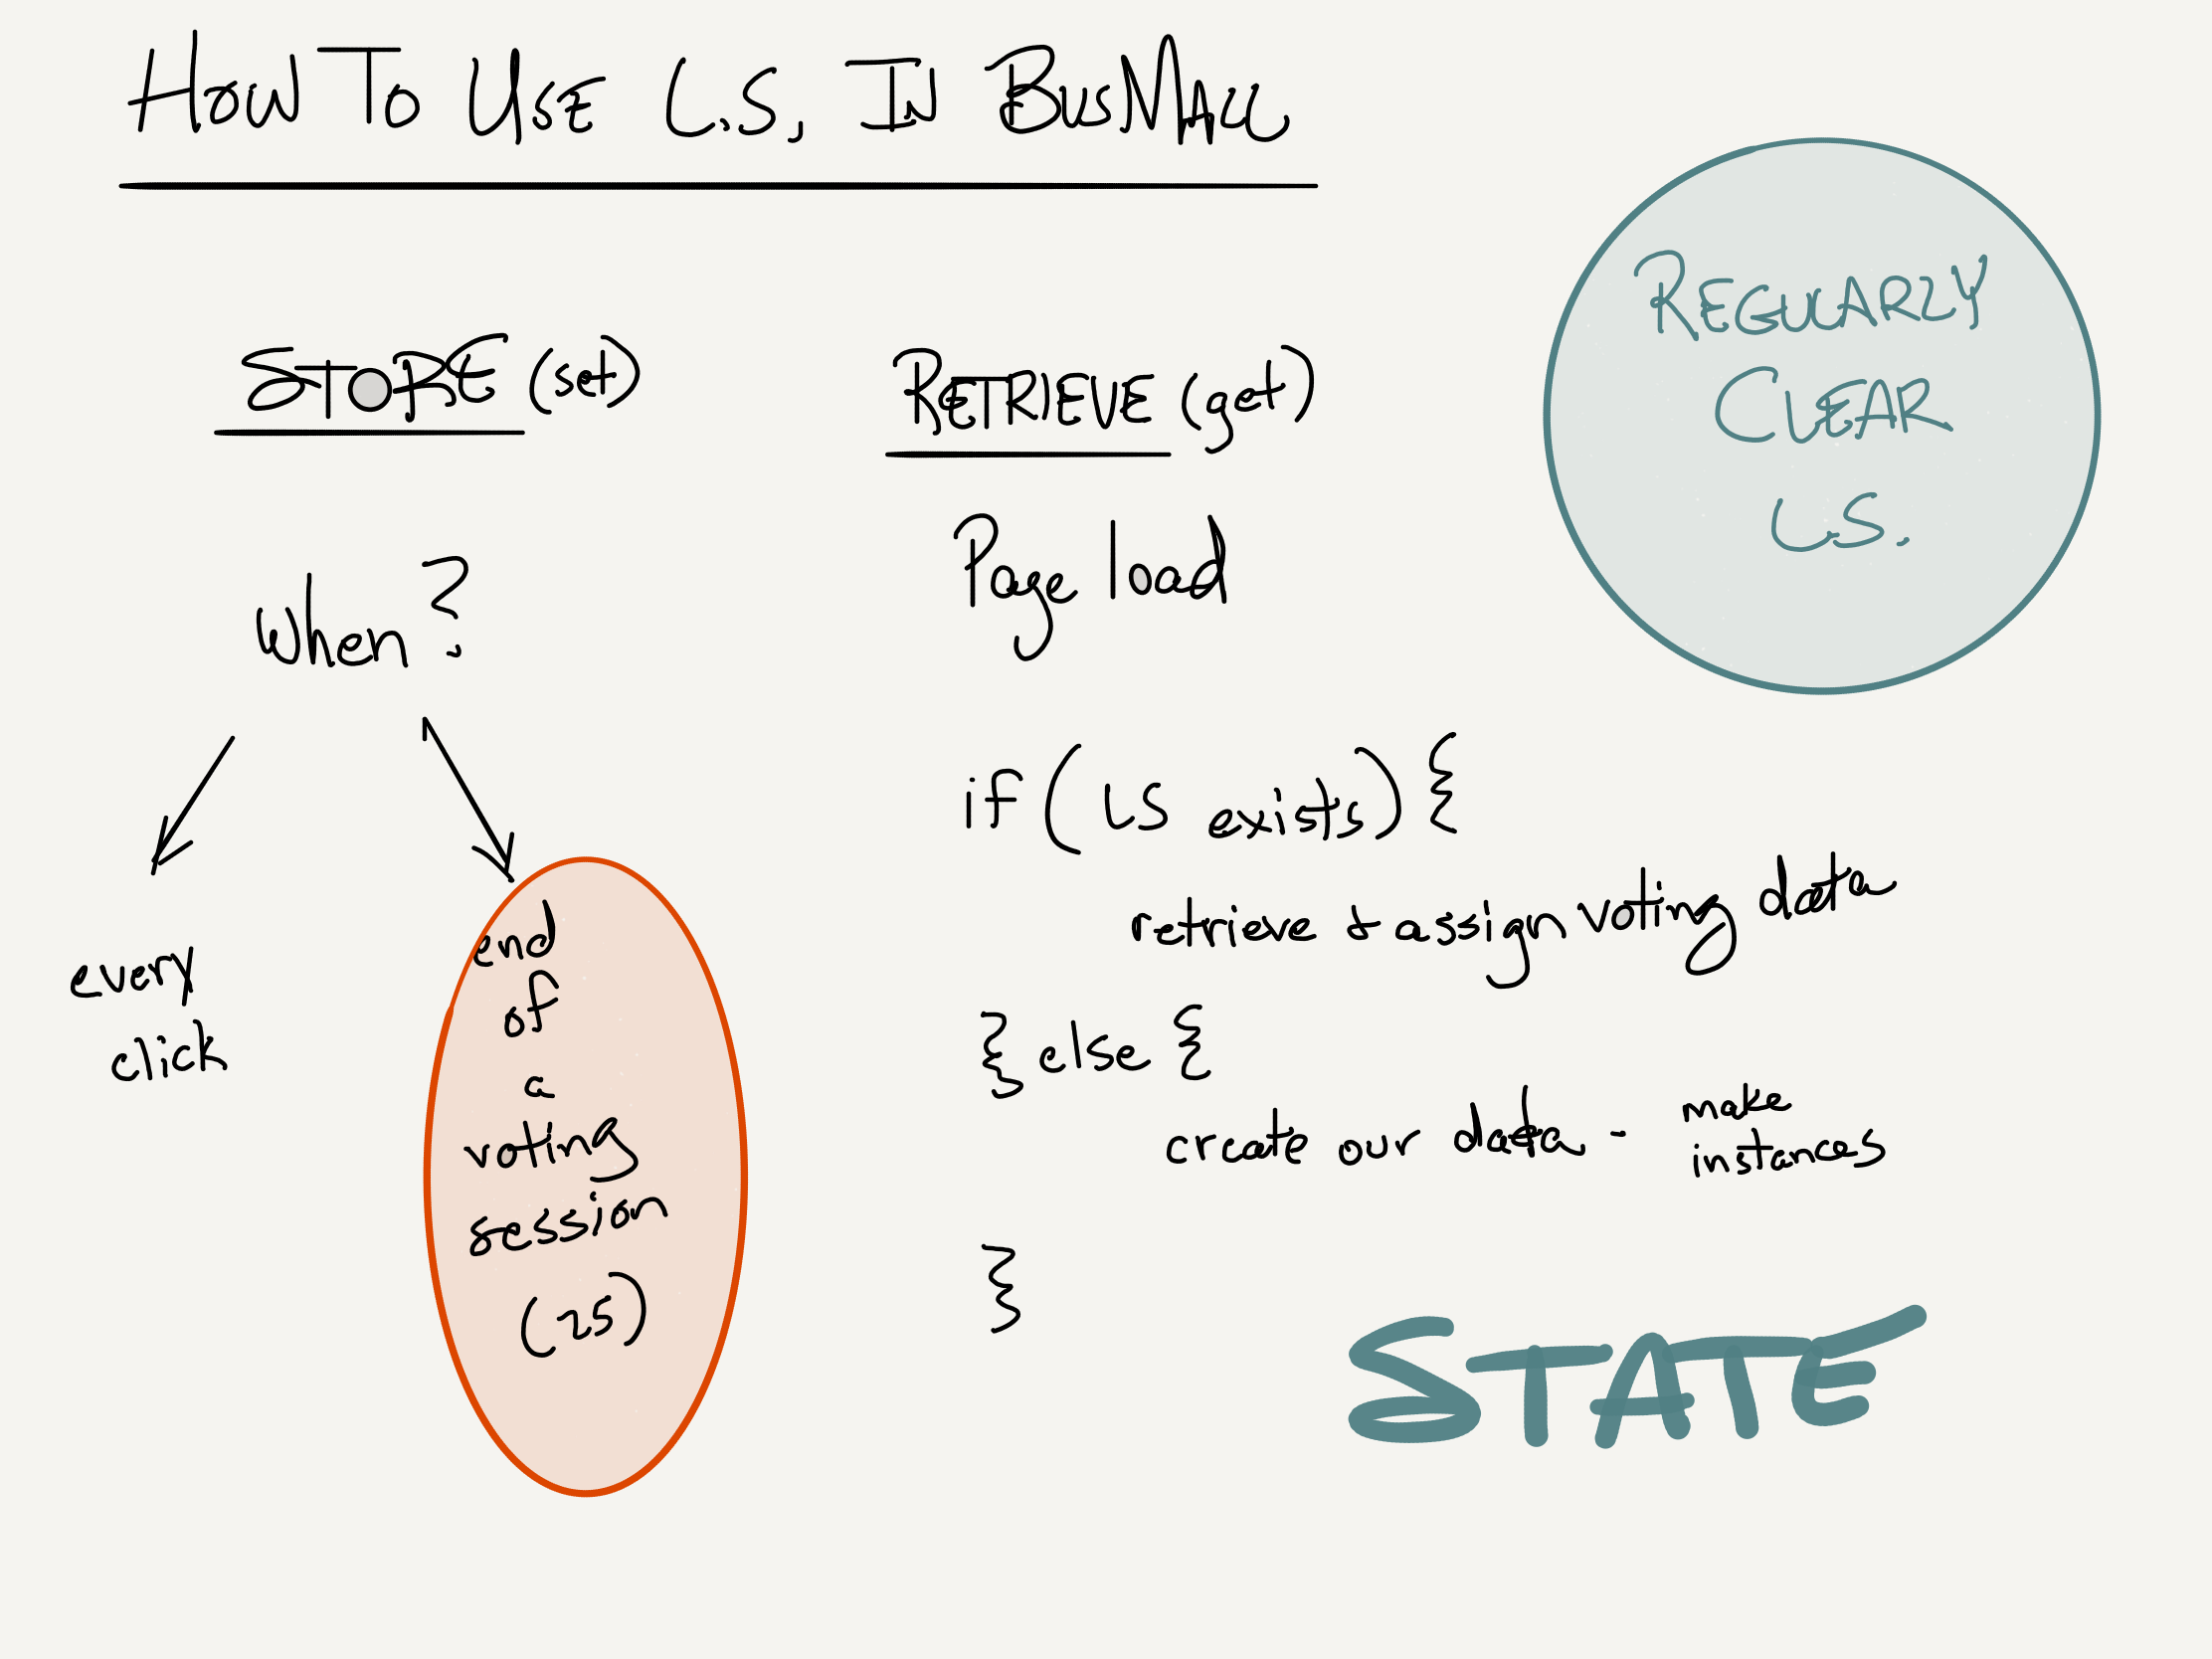 HOW TO USE L.S. IN BUSMALL
STORE (set)
when?
every
click
end
of
a
voting
session
(25)
RETRIEVE (get)
Page load
if (LS exists) {
retrieve & assign voting data
} else {
create our data - make
instances
}
REGULARLY
CLEAR
L.S.
STATE